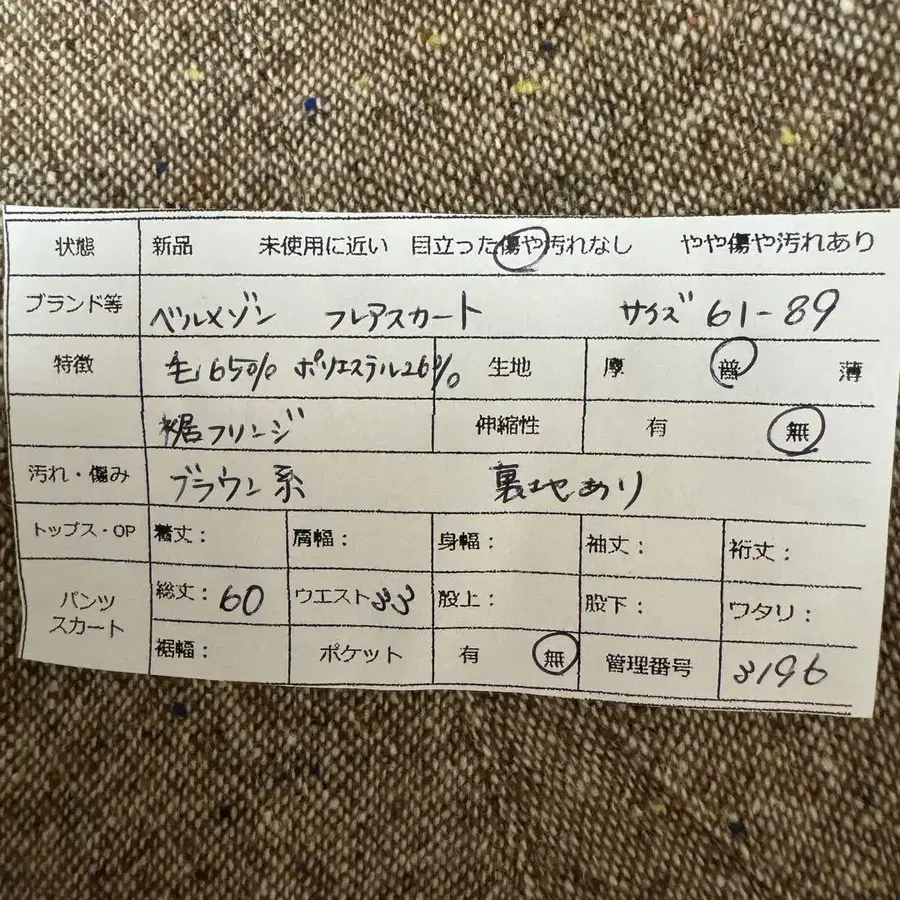 状態 新品 未使用に近い 目立った傷や汚れなし やや傷や汚れあり
ブランド等 ベルメゾン フレアスカート サイズ 61-89
特徴 毛65% ポリエステル26% 生地 厚 普 薄
裾フリンジ 伸縮性 有 無
汚れ・傷み ブラウン系 裏地あり
トップス・OP 着丈: 肩幅: 身幅: 袖丈: 裄丈:
パンツ スカート 総丈: 60 ウエスト33 股上: 股下: ワタリ:
裾幅: ポケット 有 無 管理番号 3196